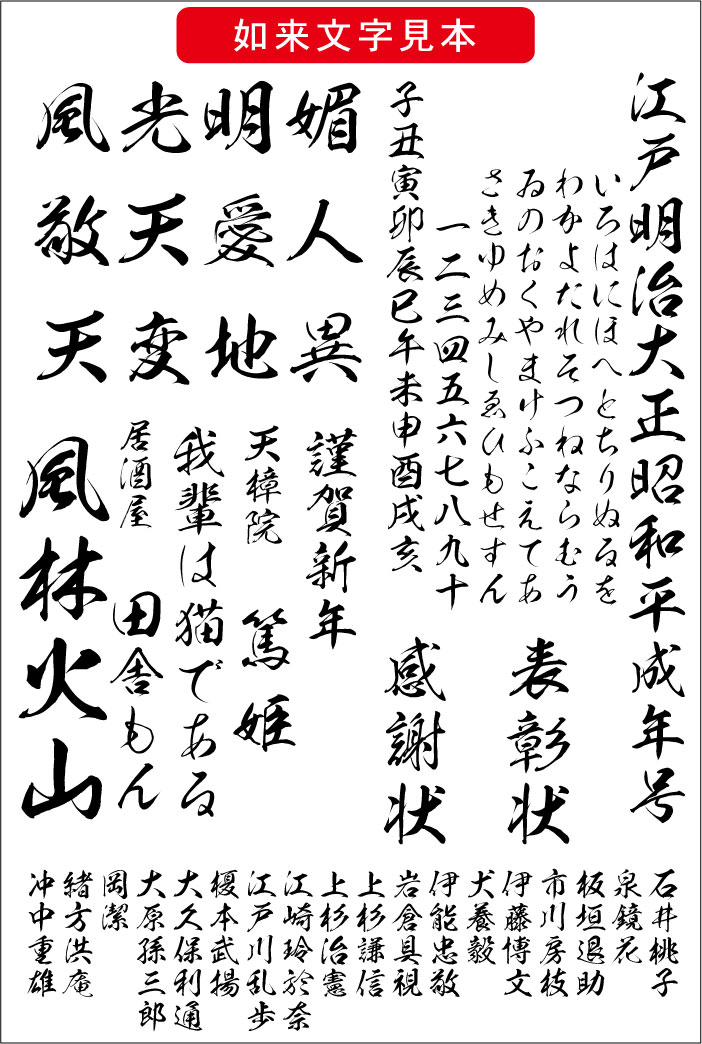 如来文字見本
江戸明治大正昭和平成年号
いろはにほへとちりぬるを
わかよたれそつねならむう
ゐのおくやまけふこえてあ
さきゆめみしゑひもせすん
一二三四五六七八九十
子丑寅卯辰巳午未申酉戌亥
表彰状
感謝状
媚人異
明愛地
光天変
風敬天
謹賀新年
天樟院
篤姫
我輩は猫である
居酒屋
田舎もん
風林火山
石井桃子
泉鏡花
板垣退助
市川房枝
伊藤博文
犬養毅
伊能忠敬
岩倉具視
上杉謙信
上杉治憲
江崎玲於奈
江戸川乱歩
榎本武揚
大久保利通
大原孫三郎
岡潔
緒方洪庵
冲中重雄